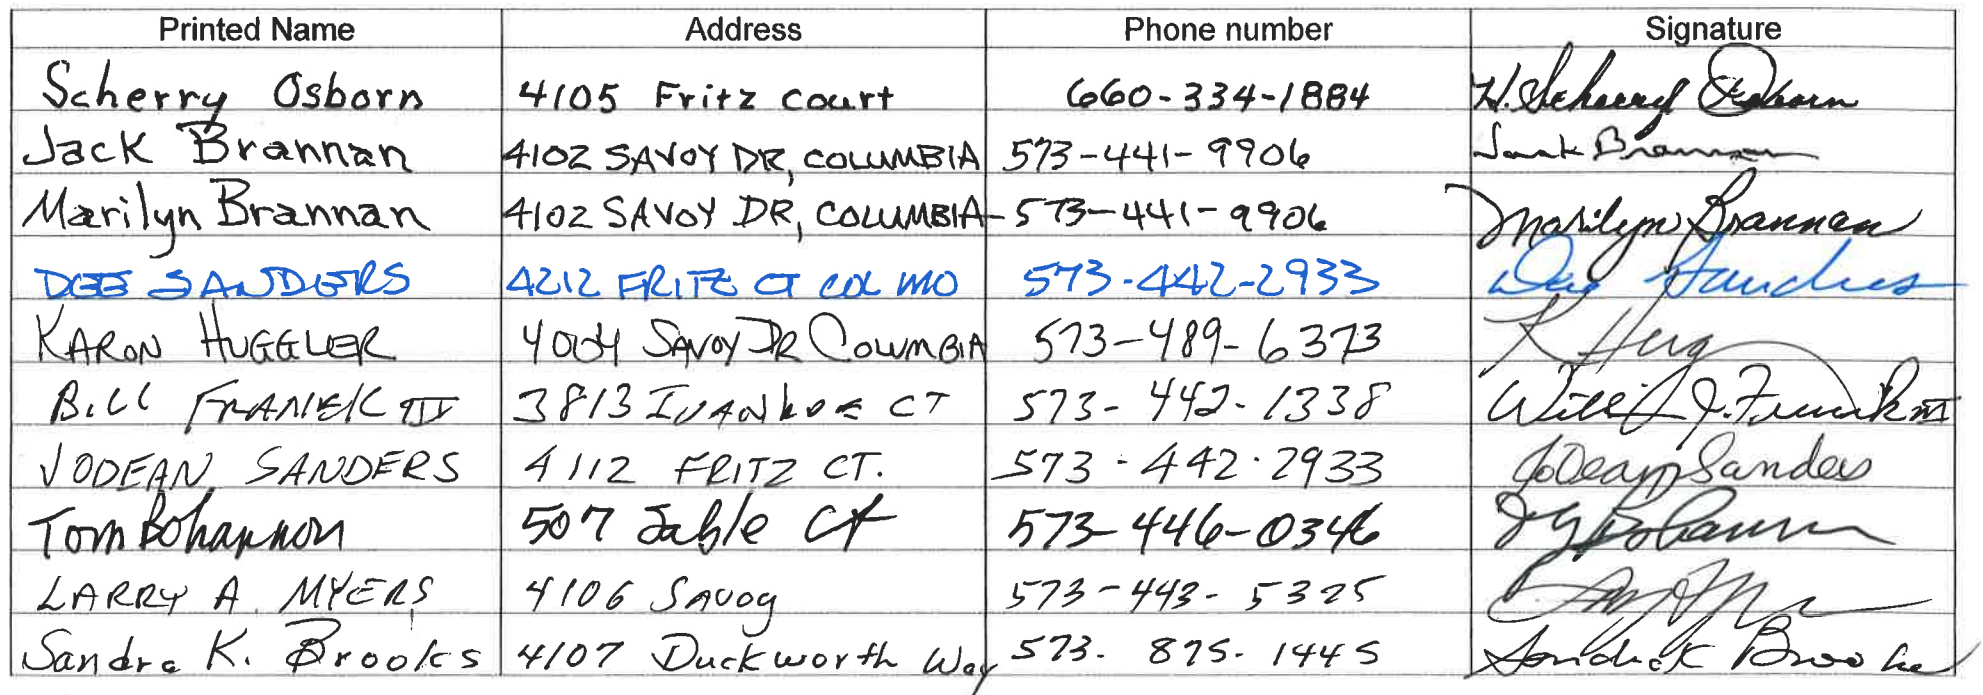 Printed Name Address Phone number Signature
Scherry Osborn 4105 Fritz court 660-334-1884 H. Scherry Osborn
Jack Brannan 4102 SAVOY DR, COLUMBIA 573-441-9906 Jack Brannan
Marilyn Brannan 4102 SAVOY DR, COLUMBIA 573-441-9906 Marilyn Brannan
DEE SANDERS 4212 FRITZ CT COL MO 573-442-2933 Dee Sanders
KARON HUGGLER 4004 SAVOY DR COLUMBIA 573-489-6373 K Hug
BILL FRANEK III 3813 IVANHOE CT 573-442-1338 J. Franek III
JODEAN SANDERS 4112 FRITZ CT. 573-442-2933 JoDean Sanders
Tom Bohannon 507 Sable Ct 573-446-0346 Bohannon
LARRY A. MYERS 4106 SAVOY 573-443-5325
Sandra K. Brooks 4107 Duckworth Way 573-875-1445 Sandra K Brooks